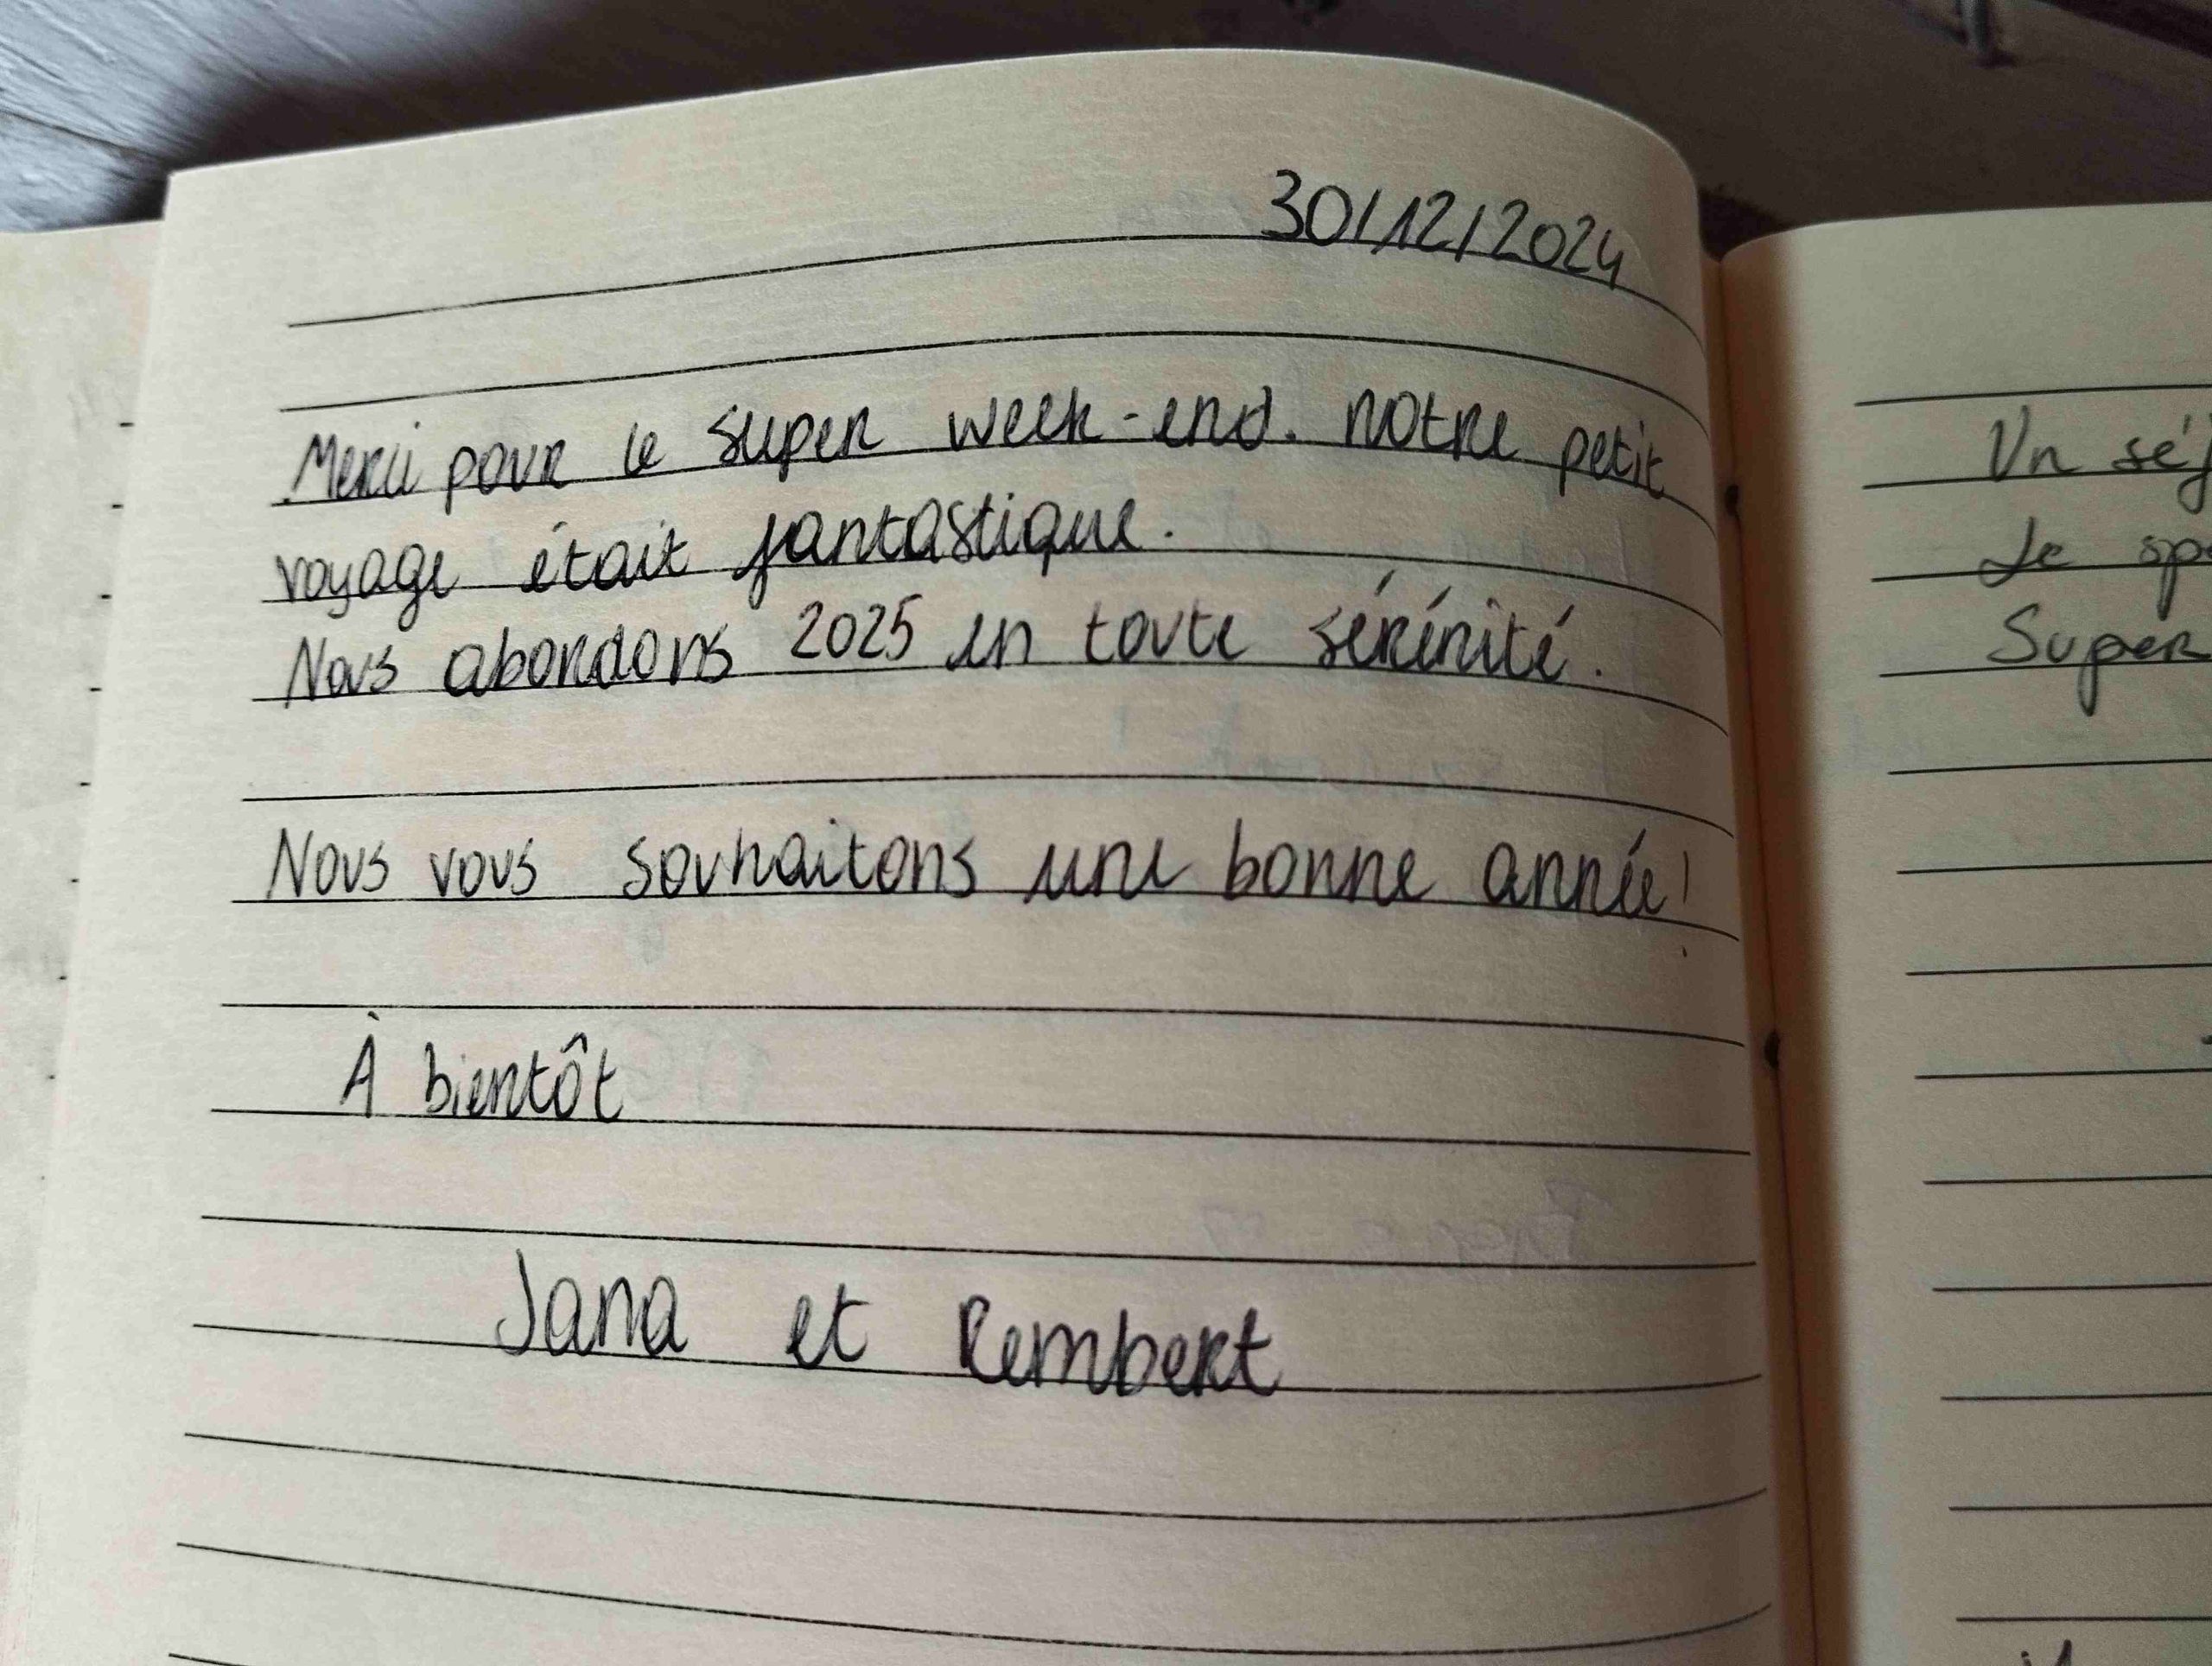 30/12/2024
Merci pour le super week-end. Notre petit
voyage était fantastique.
Nous abordons 2025 en toute sérénité.
Nous vous souhaitons une bonne année!
À bientôt
Jana et Rembert
Un
Je
Super